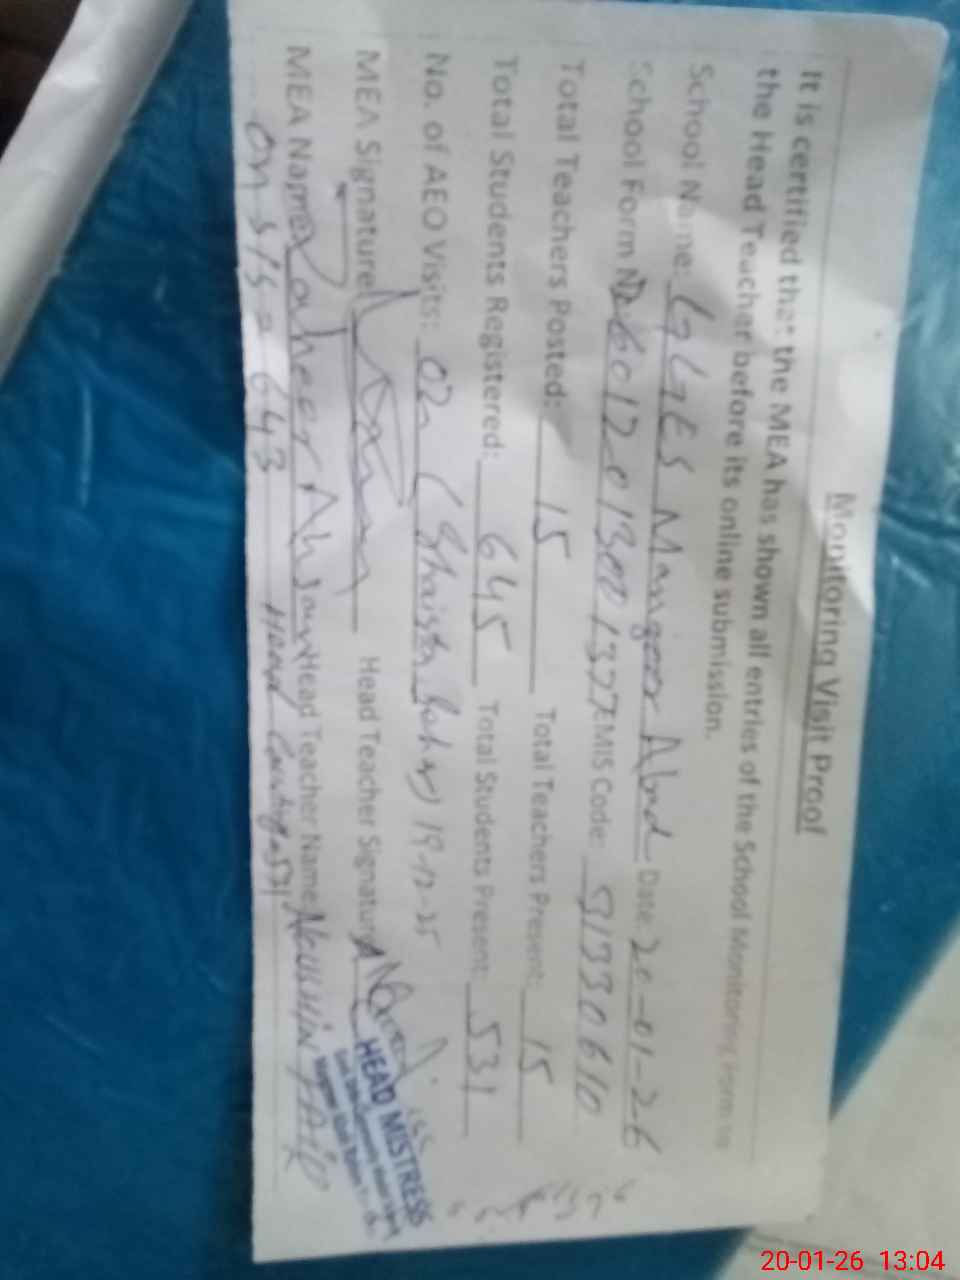 Monitoring Visit Proof
It is certified that the MEA has shown all entries of the School Monitoring Form to
the Head Teacher before its online submission.
School Name: GGES Mangoor Abad Date: 20-01-26
School Form No. EMIS Code: 31330610
Total Teachers Posted: 15 Total Teachers Present: 15
Total Students Registered: 645 Total Students Present: 531
No. of AEO Visits: 02 (Shaista) 19-12-25
MEA Signature Head Teacher Signature
MEA Name Zaheer Ahmad Head Teacher Name
on SIS = 643 Head Counting = 531
HEAD MISTRESS
20-01-26 13:04